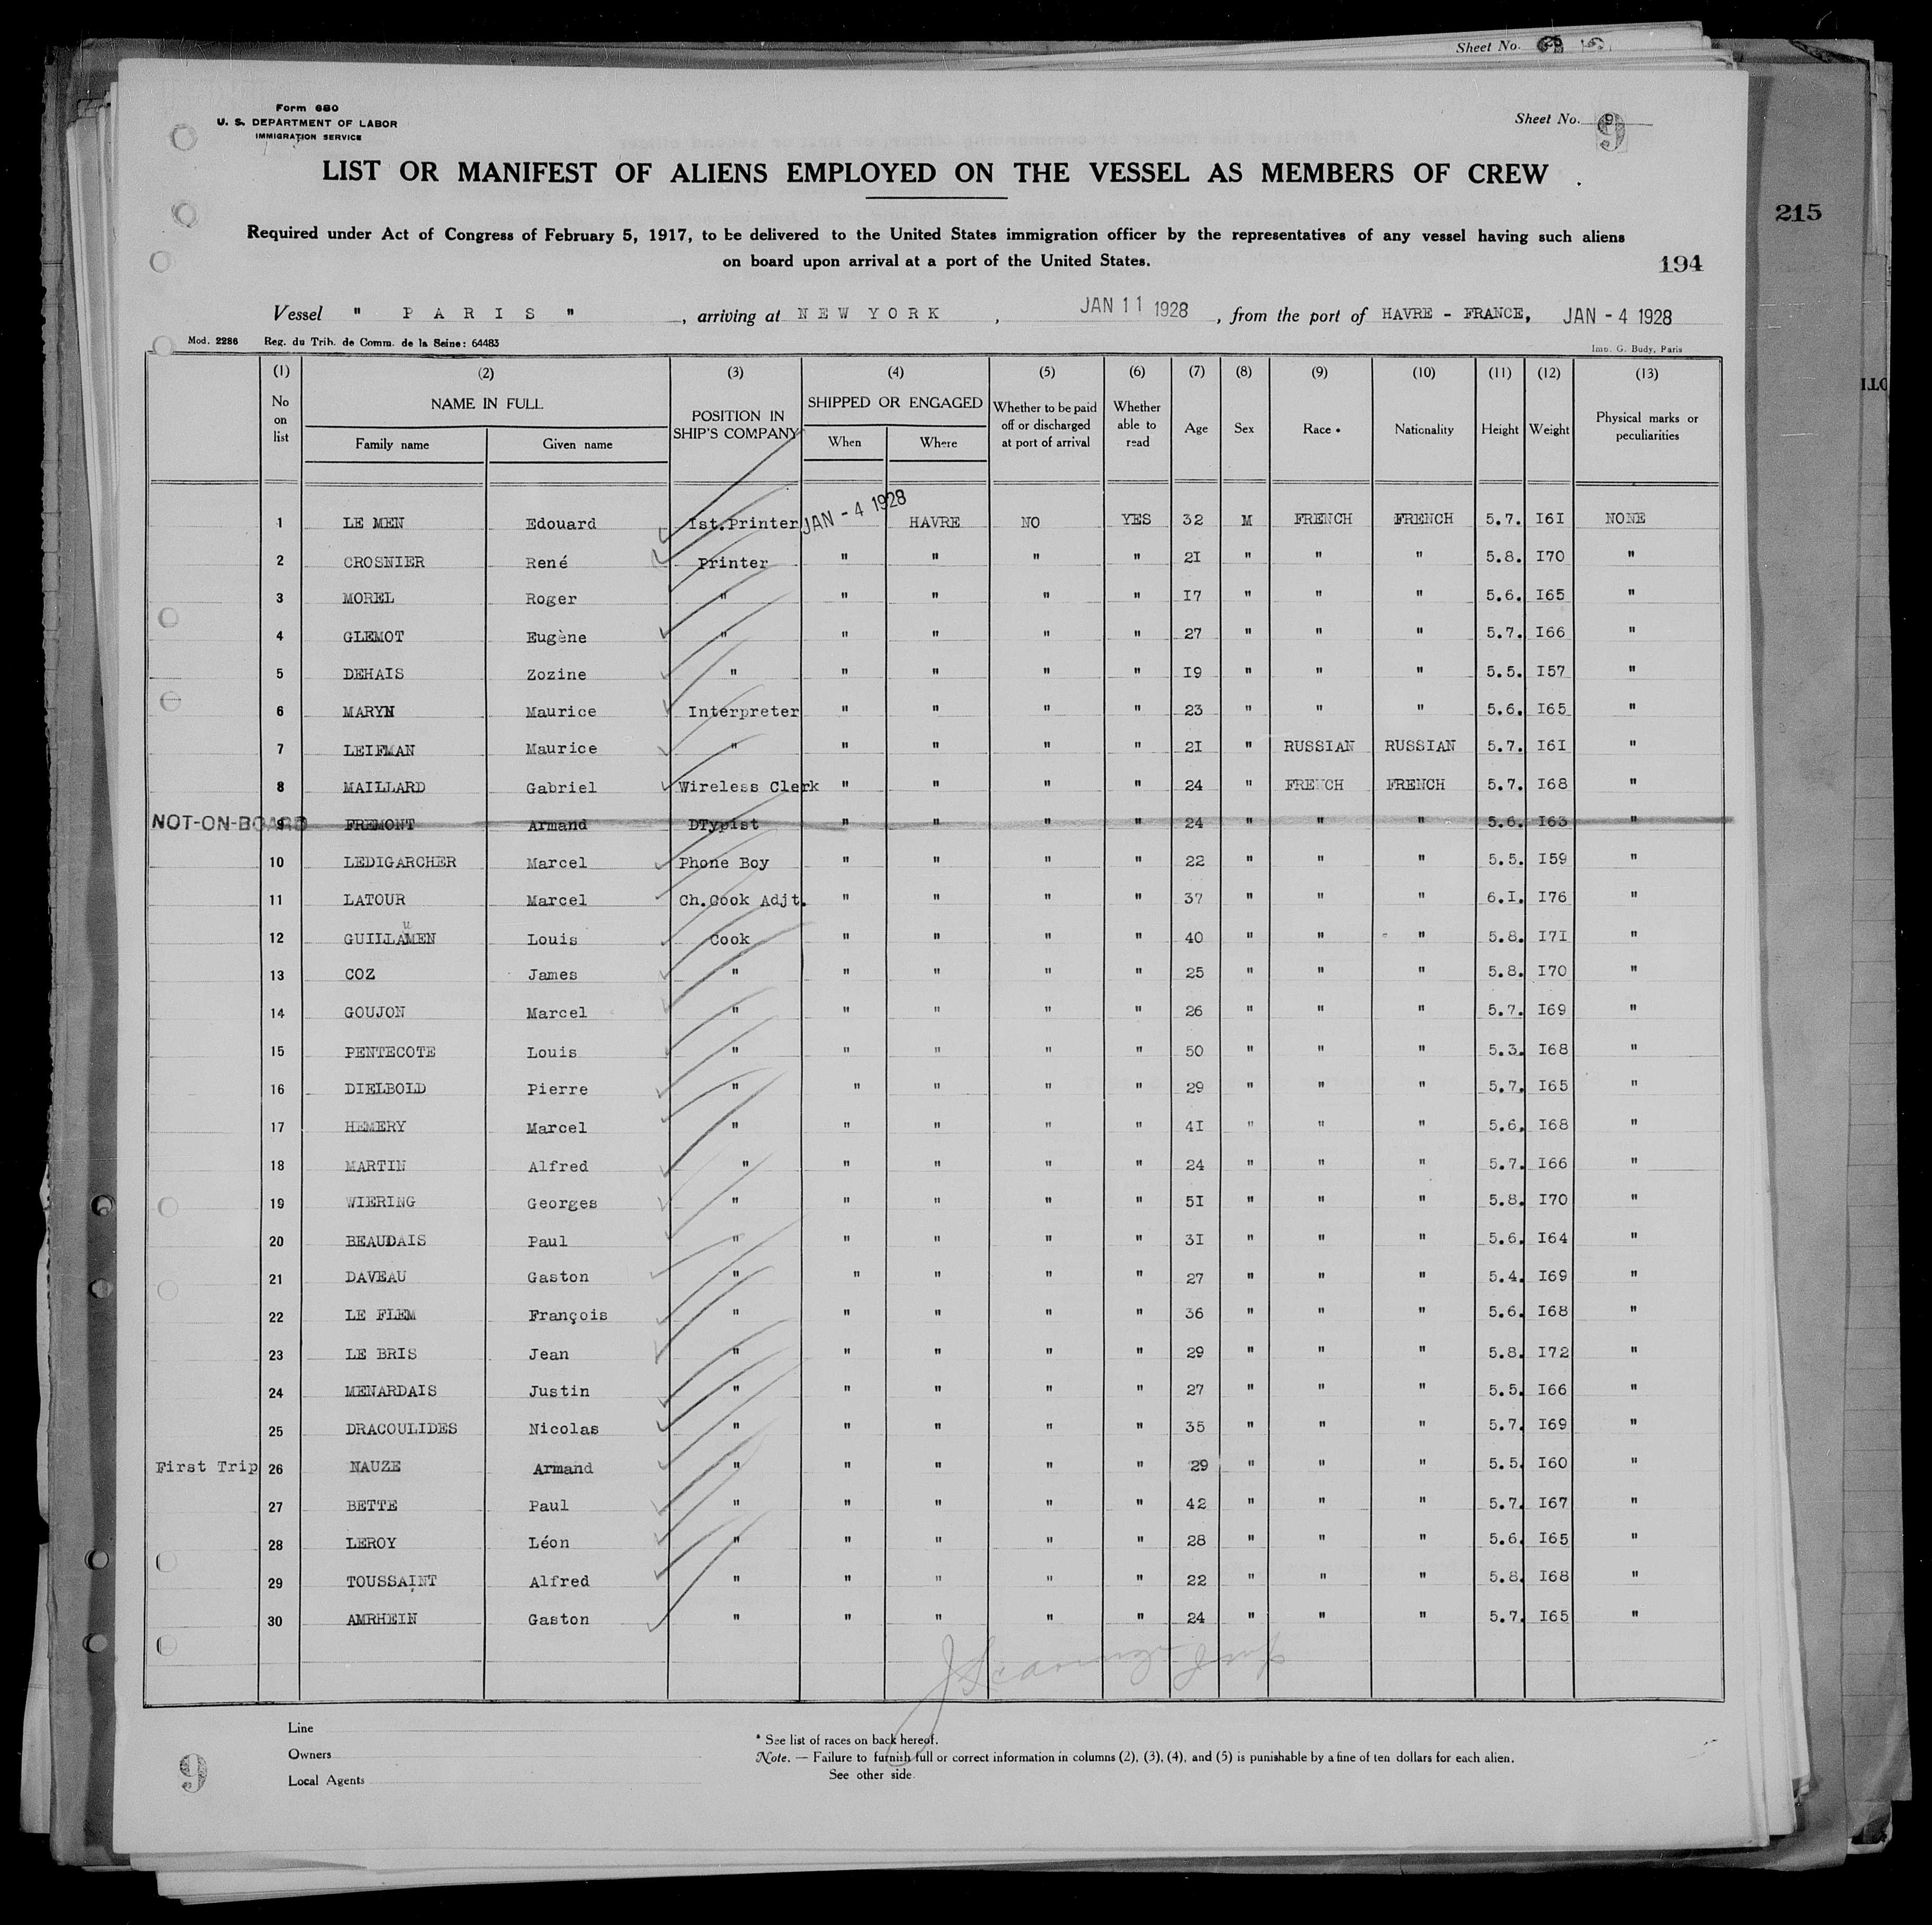 Sheet No.
Form 680
U. S. DEPARTMENT OF LABOR
IMMIGRATION SERVICE
Sheet No. 9
9
LIST OR MANIFEST OF ALIENS EMPLOYED ON THE VESSEL AS MEMBERS OF CREW
215
Required under Act of Congress of February 5, 1917, to be delivered to the United States immigration officer by the representatives of any vessel having such aliens
on board upon arrival at a port of the United States.
194
Vessel " PARIS ", arriving at NEW YORK, JAN 11 1928, from the port of HAVRE - FRANCE, JAN - 4 1928
Mod. 2286 Reg. du Trib. de Comm. de la Seine: 64483 Imp. G. Budy, Paris
(1) (2) (3) (4) (5) (6) (7) (8) (9) (10) (11) (12) (13)
No on list NAME IN FULL Family name Given name POSITION IN SHIP'S COMPANY SHIPPED OR ENGAGED When Where Whether to be paid off or discharged at port of arrival Whether able to read Age Sex Race * Nationality Height Weight Physical marks or peculiarities
1 LE MEN Edouard Ist.Printer JAN - 4 1928 HAVRE NO YES 32 M FRENCH FRENCH 5.7. I6I NONE
2 CROSNIER René Printer " " " " 2I " " " 5.8. I70 "
3 MOREL Roger " " " " " I7 " " " 5.6. I65 "
4 GLEMOT Eugène " " " " " 27 " " " 5.7. I66 "
5 DEHAIS Zozine " " " " " I9 " " " 5.5. I57 "
6 MARYN Maurice Interpreter " " " " 23 " " " 5.6. I65 "
7 LEIFMAN Maurice " " " " " 2I " RUSSIAN RUSSIAN 5.7. I6I "
8 MAILLARD Gabriel Wireless Clerk " " " " 24 " FRENCH FRENCH 5.7. I68 "
NOT-ON-BOARD 9 FREMONT Armand DTypist " " " " 24 " " " 5.6. I63 "
10 LEDIGARCHER Marcel Phone Boy " " " " 22 " " " 5.5. I59 "
11 LATOUR Marcel Ch.Cook Adjt. " " " " 37 " " " 6.I. I76 "
u
12 GUILLAMEN Louis Cook " " " " 40 " " " 5.8. I7I "
13 COZ James " " " " " 25 " " " 5.8. I70 "
14 GOUJON Marcel " " " " " 26 " " " 5.7. I69 "
15 PENTECOTE Louis " " " " " 50 " " " 5.3. I68 "
16 DIELBOLD Pierre " " " " " 29 " " " 5.7. I65 "
17 HEMERY Marcel " " " " " 4I " " " 5.6. I68 "
18 MARTIN Alfred " " " " " 24 " " " 5.7. I66 "
19 WIERING Georges " " " " " 5I " " " 5.8. I70 "
20 BEAUDAIS Paul " " " " " 3I " " " 5.6. I64 "
21 DAVEAU Gaston " " " " " 27 " " " 5.4. I69 "
22 LE FLEM François " " " " " 36 " " " 5.6. I68 "
23 LE BRIS Jean " " " " " 29 " " " 5.8. I72 "
24 MENARDAIS Justin " " " " " 27 " " " 5.5. I66 "
25 DRACOULIDES Nicolas " " " " " 35 " " " 5.7. I69 "
First Trip 26 NAUZE Armand " " " " " 29 " " " 5.5. I60 "
27 BETTE Paul " " " " " 42 " " " 5.7. I67 "
28 LEROY Léon " " " " " 28 " " " 5.6. I65 "
29 TOUSSAINT Alfred " " " " " 22 " " " 5.8. I68 "
30 AMRHEIN Gaston " " " " " 24 " " " 5.7. I65 "
Line
Owners
Local Agents
9
* See list of races on back hereof.
Note. — Failure to furnish full or correct information in columns (2), (3), (4), and (5) is punishable by a fine of ten dollars for each alien.
See other side.